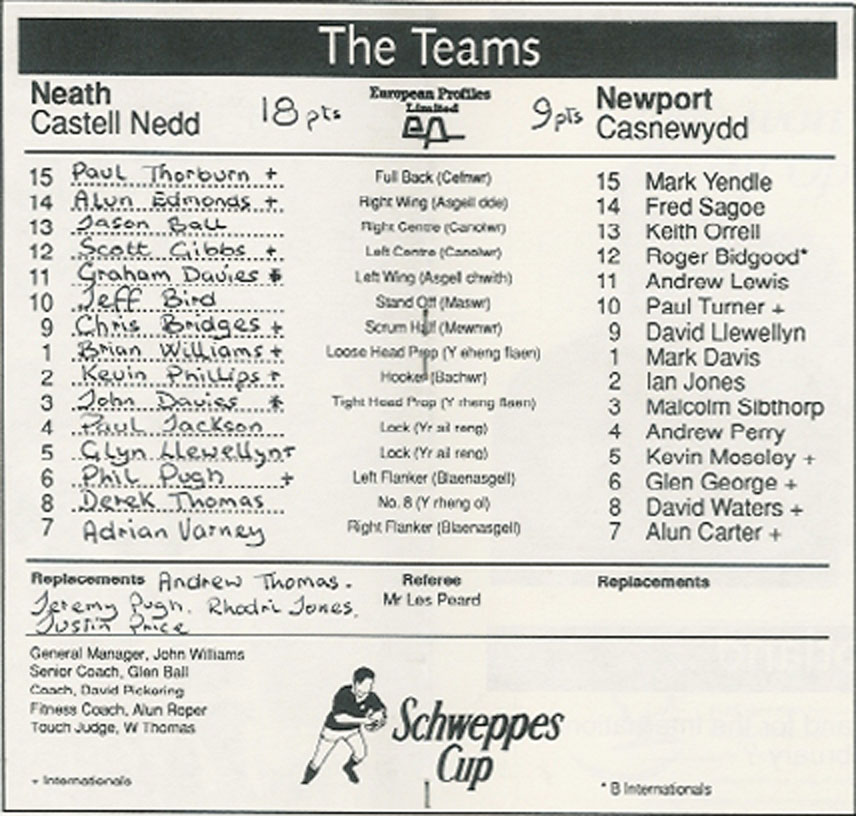 The Teams
Neath
Castell Nedd
18 pts
European Profiles
Limited
9 pts
Newport
Casnewydd
15 Paul Thorburn + Full Back (Cefnwr) 15 Mark Yendle
14 Alun Edmonds + Right Wing (Asgell dde) 14 Fred Sagoe
13 Jason Ball Right Centre (Canolwr) 13 Keith Orrell
12 Scott Gibbs + Left Centre (Canolwr) 12 Roger Bidgood*
11 Graham Davies * Left Wing (Asgell chwith) 11 Andrew Lewis
10 Jeff Bird Stand Off (Maswr) 10 Paul Turner +
9 Chris Bridges + Scrum Half (Mewnwr) 9 David Llewellyn
1 Brian Williams + Loose Head Prop (Y rheng flaen) 1 Mark Davis
2 Kevin Phillips + Hooker (Bachwr) 2 Ian Jones
3 John Davies * Tight Head Prop (Y rheng flaen) 3 Malcolm Sibthorp
4 Paul Jackson Lock (Yr ail reng) 4 Andrew Perry
5 Glyn Llewellyn+ Lock (Yr ail reng) 5 Kevin Moseley +
6 Phil Pugh + Left Flanker (Blaenasgell) 6 Glen George +
8 Derek Thomas No. 8 (Y rheng ol) 8 David Waters +
7 Adrian Varney Right Flanker (Blaenasgell) 7 Alun Carter +
Replacements Andrew Thomas.
Jeremy Pugh. Rhodri Jones.
Justin Price
Referee
Mr Les Peard
Replacements
General Manager, John Williams
Senior Coach, Glen Ball
Coach, David Pickering
Fitness Coach, Alun Roper
Touch Judge, W Thomas
+ Internationals
Schweppes
Cup
* B Internationals